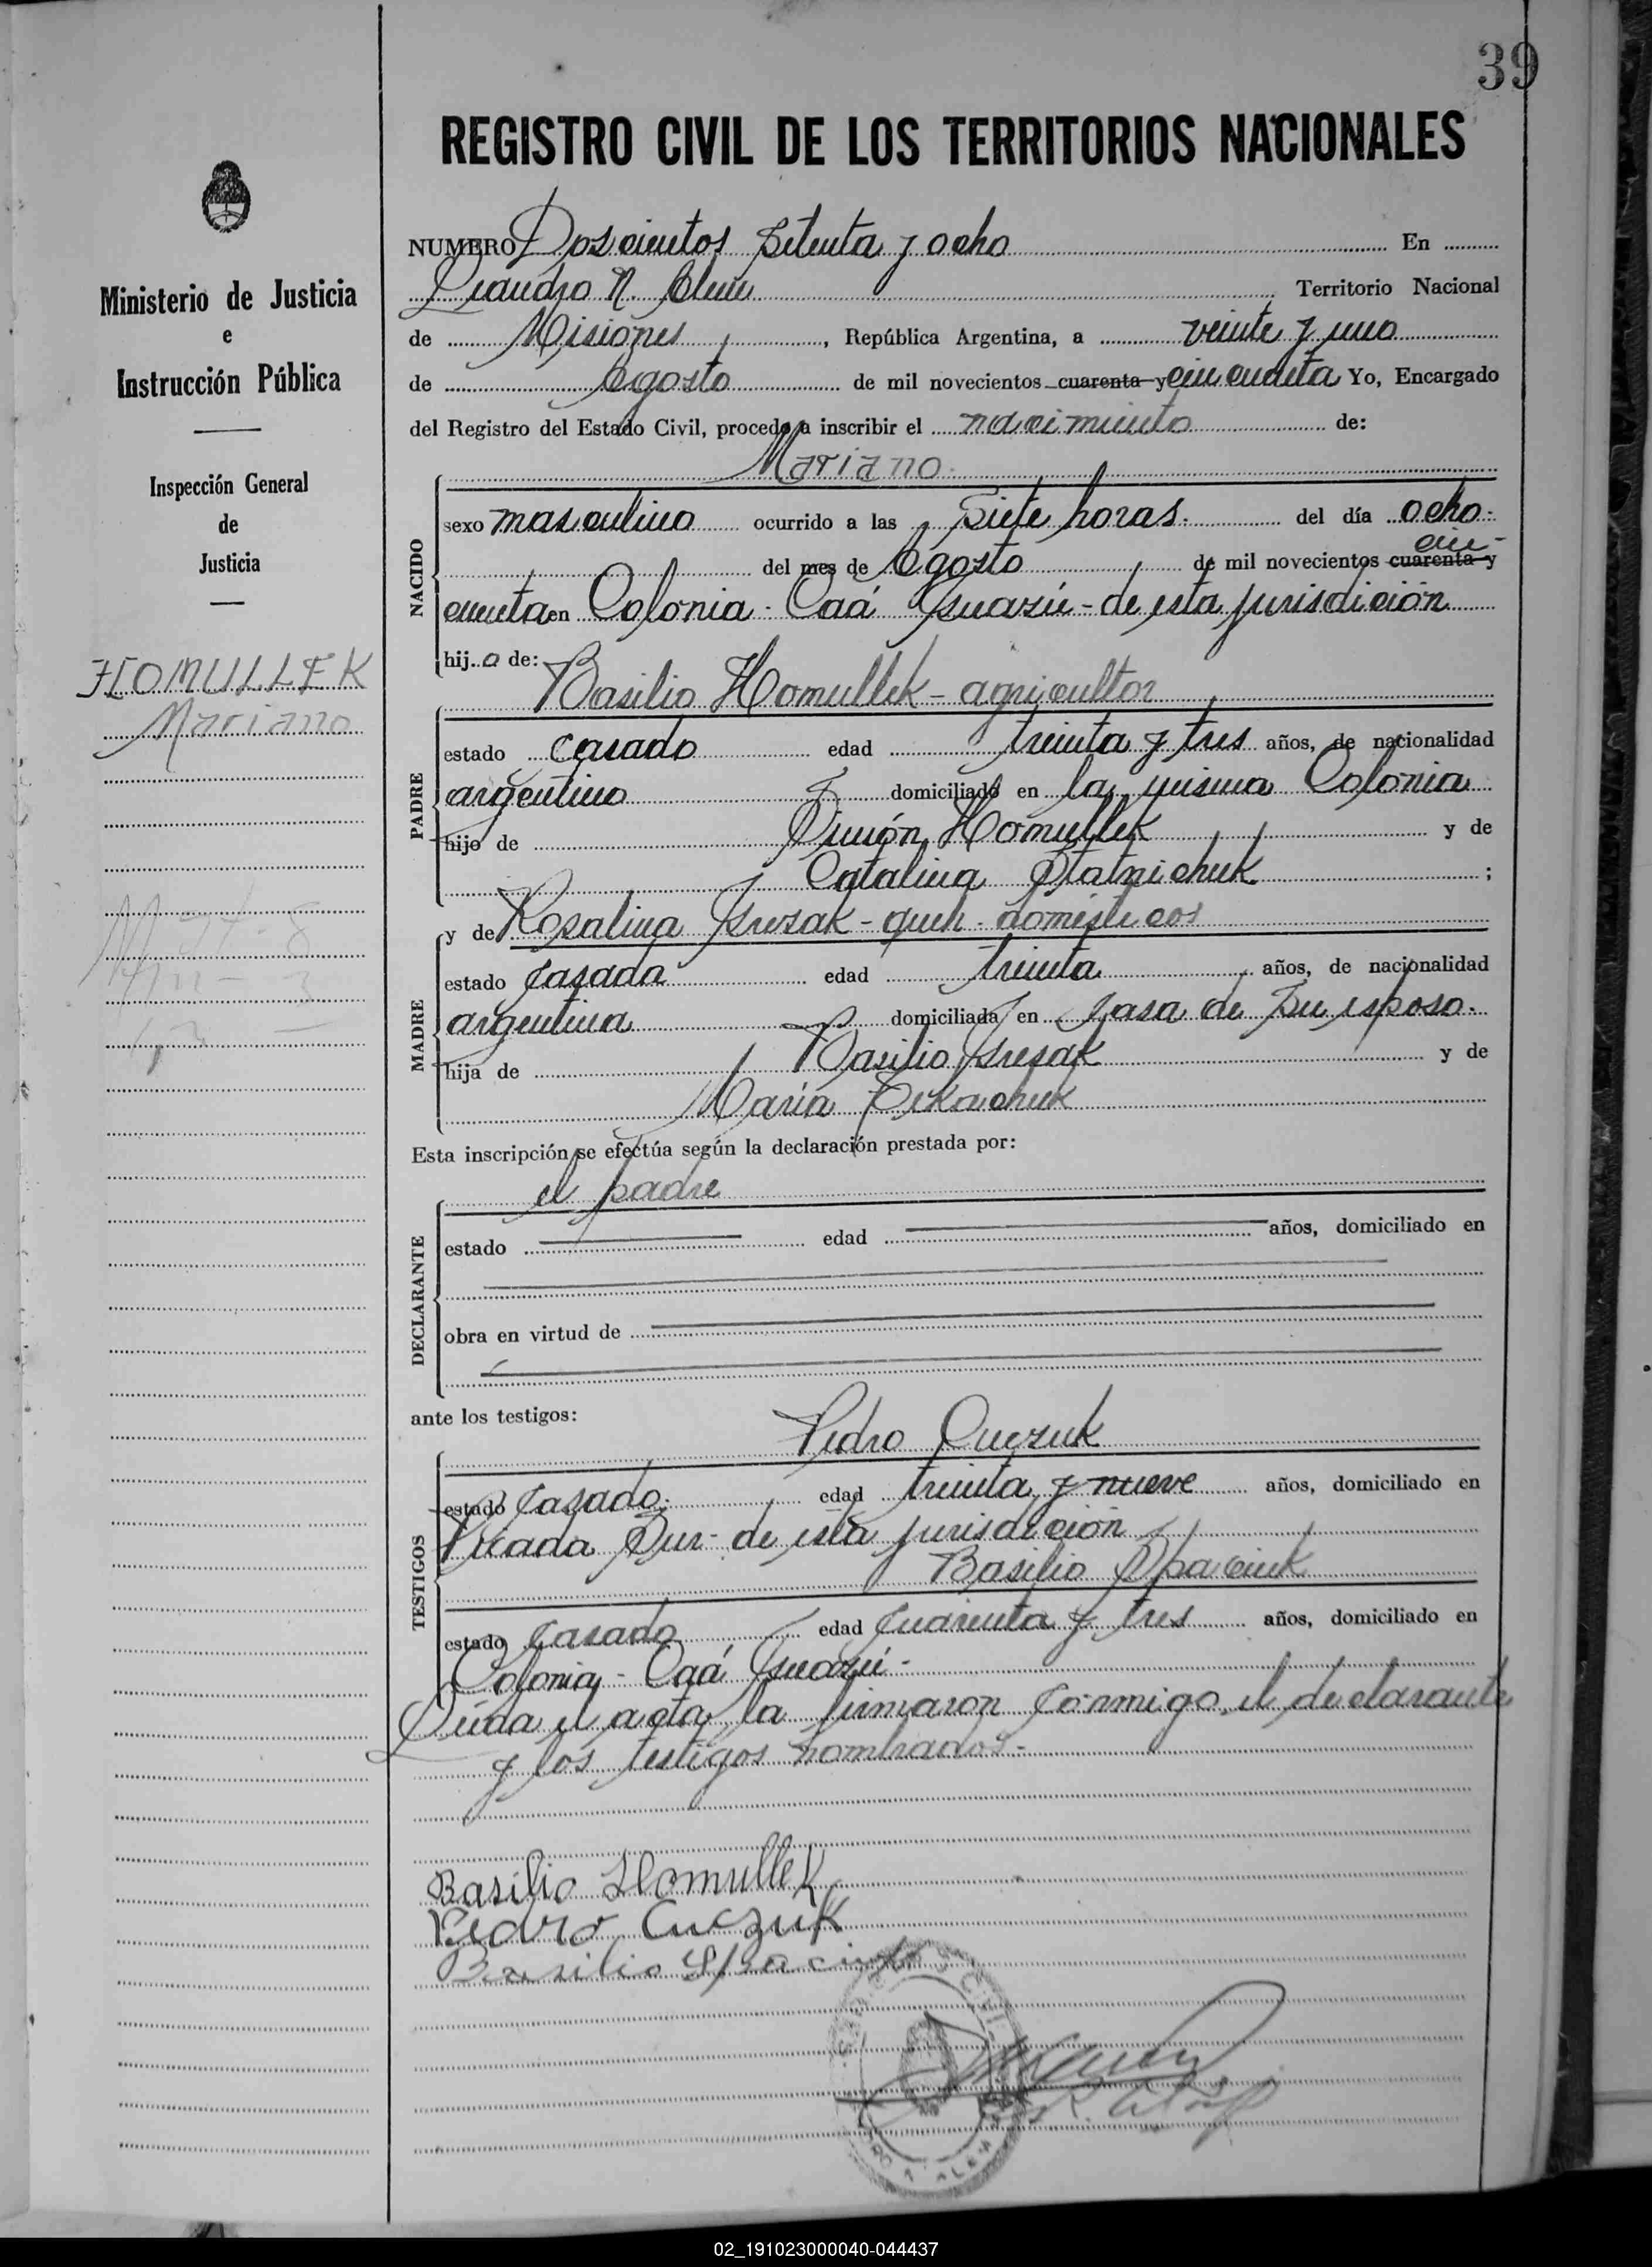 39
REGISTRO CIVIL DE LOS TERRITORIOS NACIONALES
Ministerio de Justicia
e
Instrucción Pública
Inspección General
de
Justicia
HOMULLEK
Mariano
NUMERO Doscientos Setenta y ocho En
Leandro N. Alem Territorio Nacional
de Misiones, República Argentina, a veinte y uno
de Agosto de mil novecientos cuarenta y cincuenta Yo, Encargado
del Registro del Estado Civil, procedo a inscribir el nacimiento de:
Mariano
NACIDO
sexo masculino ocurrido a las Siete horas. del día ocho
del mes de Agosto de mil novecientos cuarenta y cin-
cuenta en Colonia - Caá Guazú - de esta jurisdición
hijo de:
Basilio Homullek - agricultor
PADRE
estado casado edad treinta y tres años, de nacionalidad
argentino domiciliado en la misma Colonia
hijo de Simón Homullek y de
Catalina ;
y de Rosalina - queh. domésticos
MADRE
estado casada edad treinta años, de nacionalidad
argentina domiciliada en casa de su esposo.
hija de Basilio y de
María
Esta inscripción se efectúa según la declaración prestada por:
el padre
DECLARANTE
estado edad años, domiciliado en
obra en virtud de
ante los testigos:
Pedro Cuczuk
TESTIGOS
estado casado. edad treinta y nueve años, domiciliado en
Picada Sur - de esta jurisdición
Basilio Spaciuk
estado casado edad cuarenta y tres años, domiciliado en
Colonia - Caá Guazú -
Leída el acta, la firmaron conmigo, el declarante
y los testigos nombrados.-
Basilio Homullek
Pedro Cuczuk
Basilio Spaciuk
02_191023000040-044437